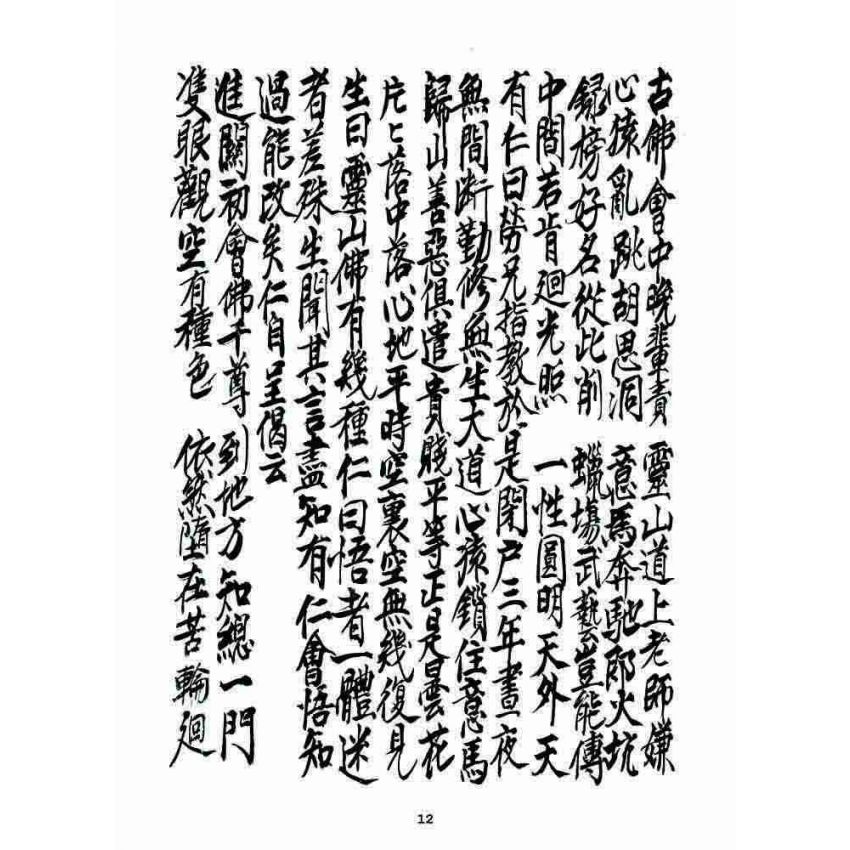 古佛會中晚輩責 靈山道上老師嫌
心猿亂跳胡思洞 意馬奔馳郎火坑
錄榜好名從此削 蠟場武藝豈能傳
中間若肯廻光照 一性圓明天外天
有仁曰勞兄指教於是閉户三年晝夜
無間斷勤修無生大道心猿鎖住意馬
歸山善惡俱遣貴賤平等正是曇花
片匕落中落心地平時空裏空無幾復見
生曰靈山佛有幾種仁曰悟者一體迷
者差殊生聞其言盡知有仁會悟知
過能改矣仁自呈偈云
進關初會佛千尊 到地方知總一門
隻眼觀空有種色 依然墮在苦輪廻
12